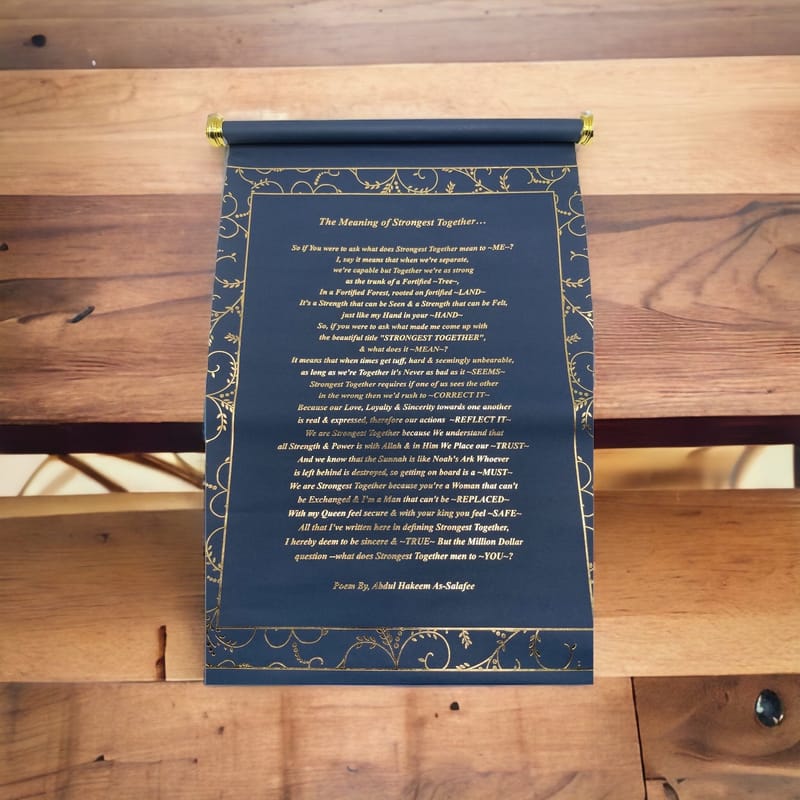 The Meaning of Strongest Together...
So if You were to ask what does Strongest Together mean to ~ME~?
I, say it means that when we're separate,
we're capable but Together we're as strong
as the trunk of a Fortified ~Tree~,
In a Fortified Forest, rooted on fortified ~LAND~
It's a Strength that can be Seen & a Strength that can be Felt,
just like my Hand in your ~HAND~
So, if you were to ask what made me come up with
the beautiful title "STRONGEST TOGETHER",
& what does it ~MEAN~?
It means that when times get tuff, hard & seemingly unbearable,
as long as we're Together it's Never as bad as it ~SEEMS~
Strongest Together requires if one of us sees the other
in the wrong then we'd rush to ~CORRECT IT~
Because our Love, Loyalty & Sincerity towards one another
is real & expressed, therefore our actions ~REFLECT IT~
We are Strongest Together because We understand that
all Strength & Power is with Allah & in Him We Place our ~TRUST~
And we know that the Sunnah is like Noah's Ark Whoever
is left behind is destroyed, so getting on board is a ~MUST~
We are Strongest Together because you're a Woman that can't
be Exchanged & I'm a Man that can't be ~REPLACED~
With my Queen feel secure & with your king you feel ~SAFE~
All that I've written here in defining Strongest Together,
I hereby deem to be sincere & ~TRUE~ But the Million Dollar
question --what does Strongest Together men to ~YOU~?
Poem By, Abdul Hakeem As-Salafee